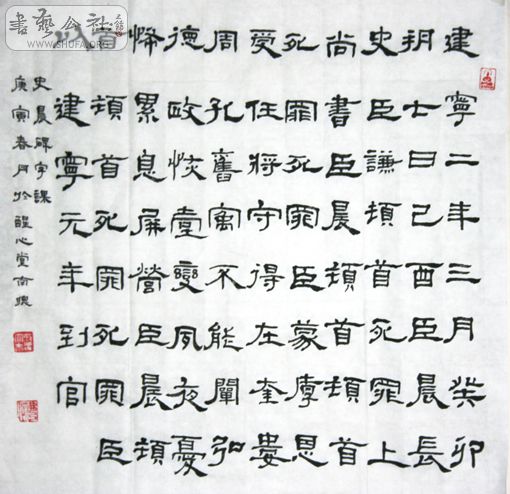 建寧二年三月癸卯
朔士日己酉臣晨長
史臣謙頓首死罪上
尚書臣晨頓首頓首
死罪死罪臣蒙厚恩
受任将守得在奎婁
周孔舊寓不能闡弘
德政恢壹變夙夜憂
怖累息屏營臣晨頓
首頓首死罪死罪臣
以建寧元年到官
史晨碑字課
庚寅春月於醒心堂南
書藝公社
WWW.SHUFA.ORG